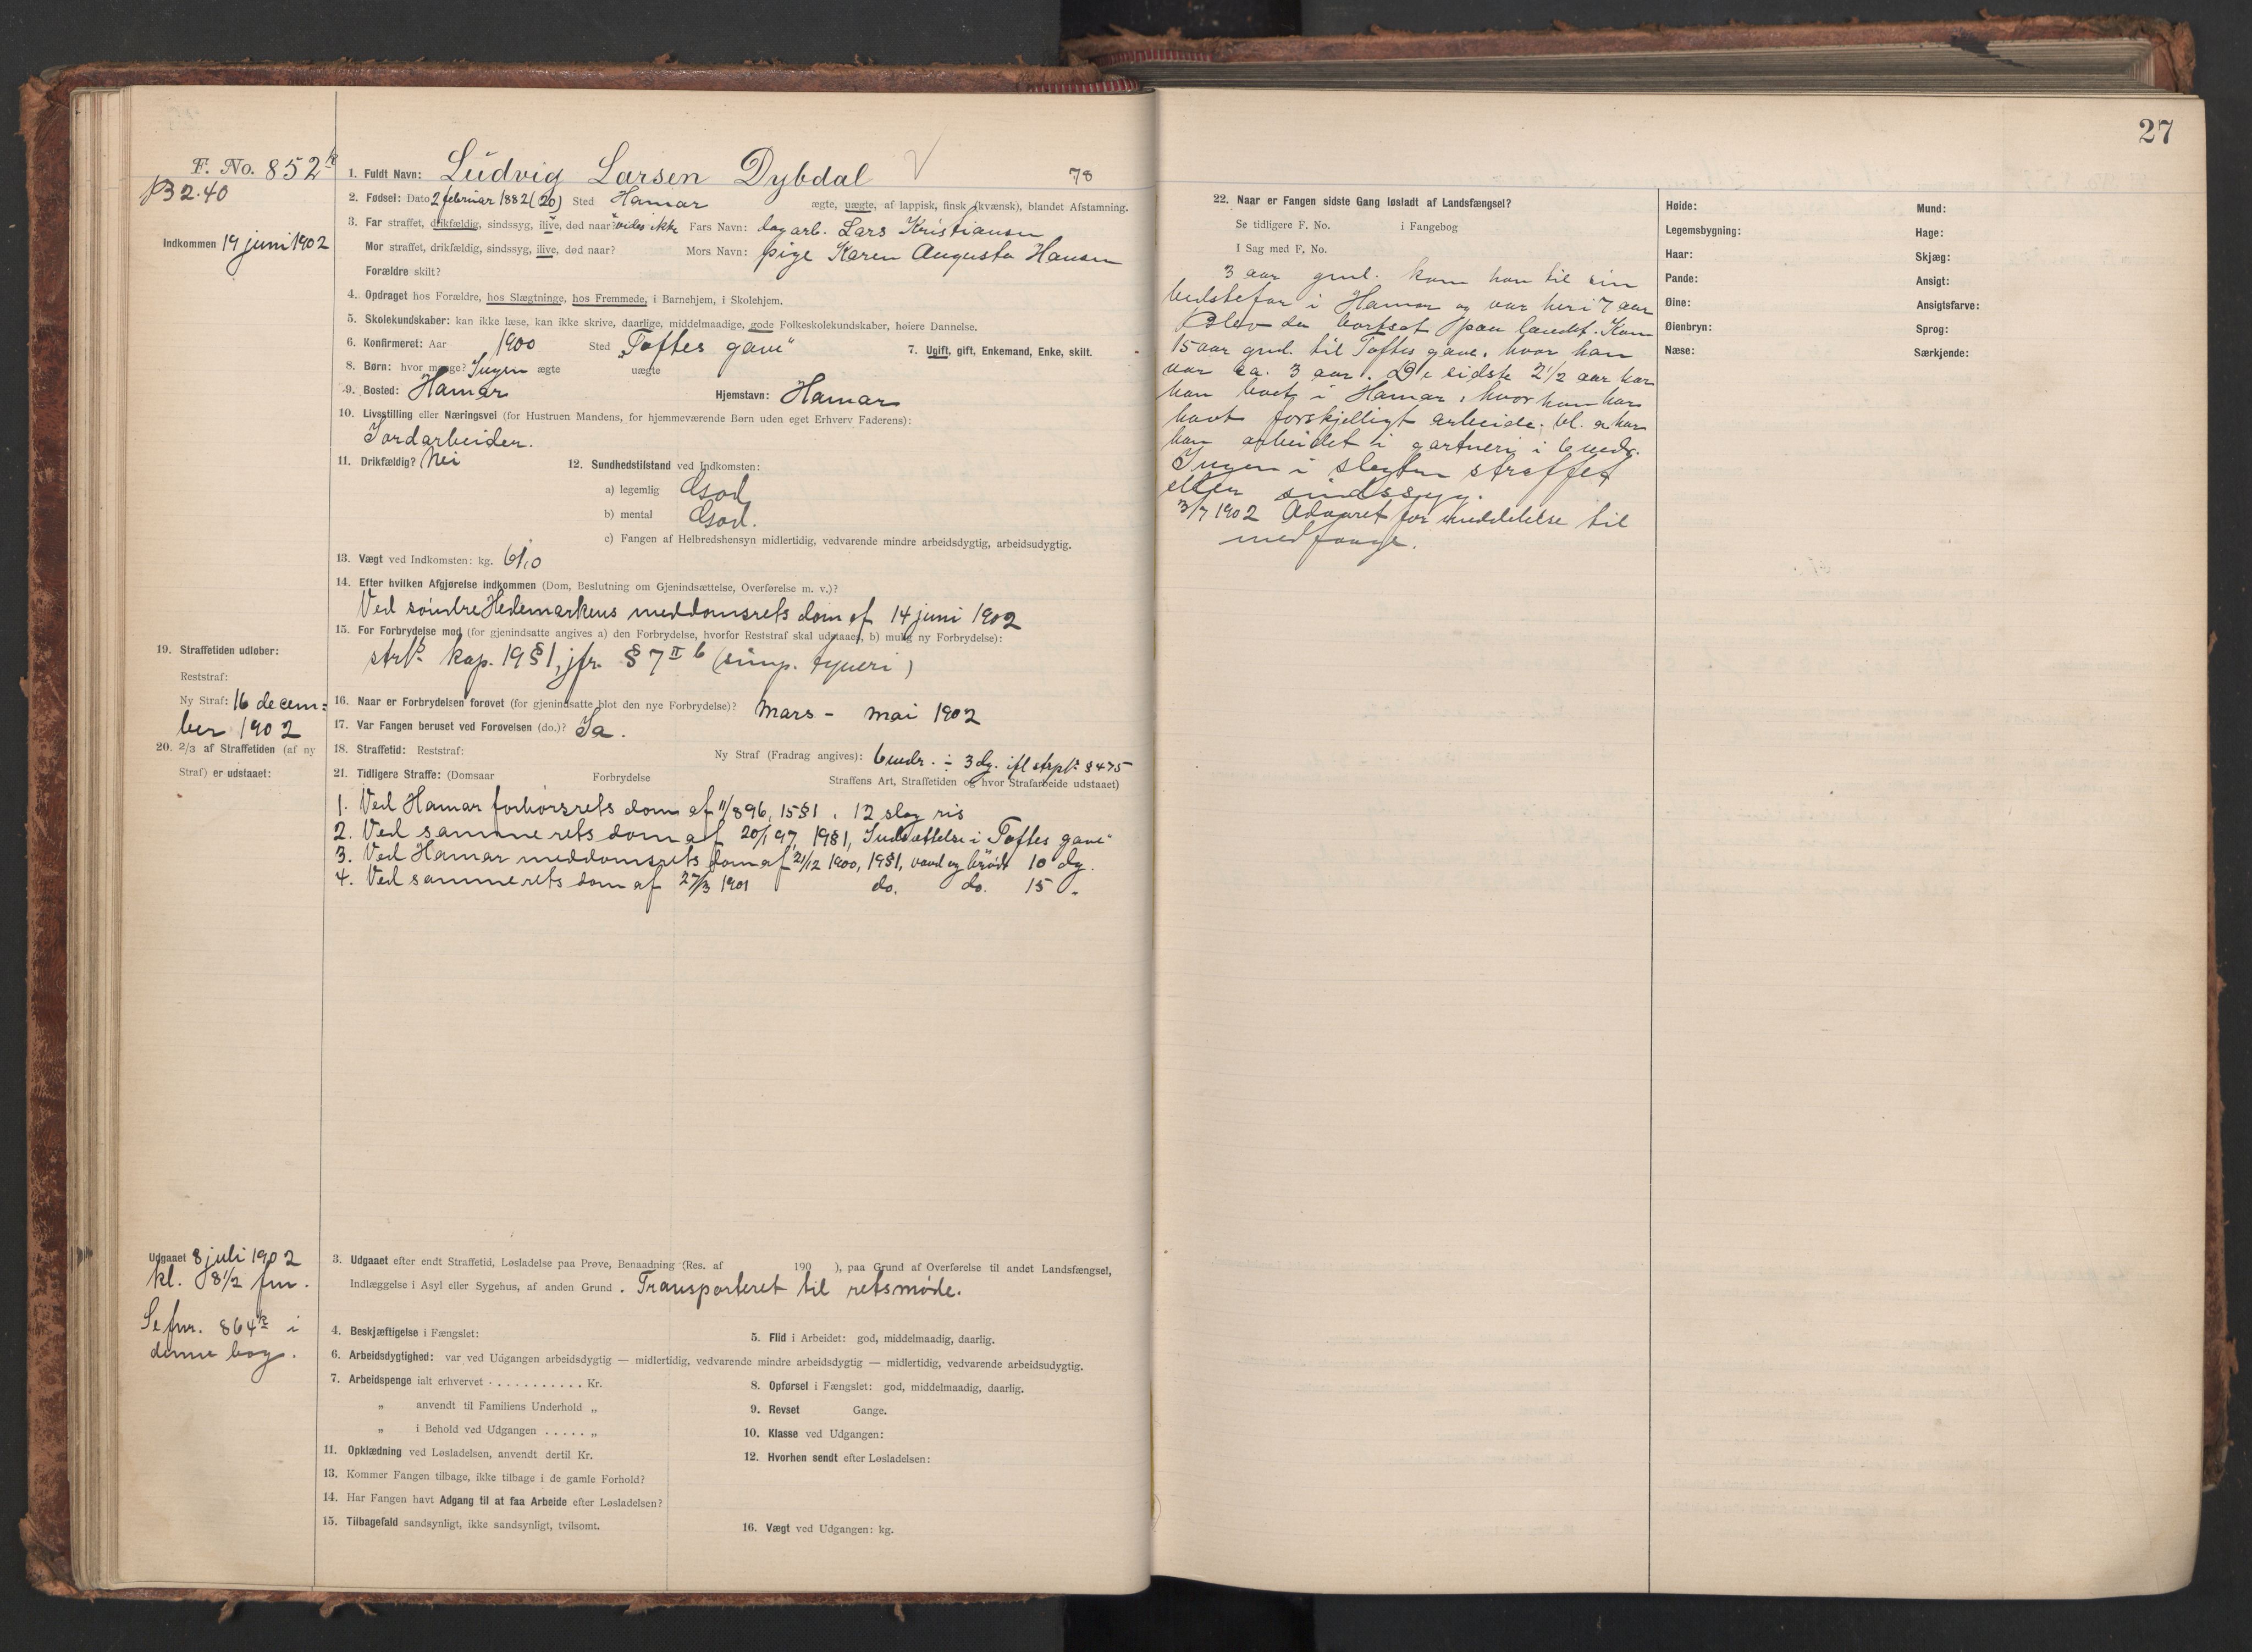 F. No. 852
B 2.40
Indkommen 19 juni 1902
1. Fuldt Navn: Ludvig Larsen Dybdal V 78
2. Fødsel: Dato 2 februar 1882 (20) Sted Hamar ægte, uægte, af lappisk, finsk (kvænsk), blandet Afstamning.
3. Far straffet, drikfældig, sindssyg, ilive, død naar? vides ikke Fars Navn: dagarb. Lars Kristiansen
Mor straffet, drikfældig, sindssyg, ilive, død naar? Mors Navn: pige Karen Augusta Hansen
Forældre skilt?
4. Opdraget hos Forældre, hos Slægtninge, hos Fremmede, i Barnehjem, i Skolehjem.
5. Skolekundskaber: kan ikke læse, kan ikke skrive, daarlige, middelmaadige, gode Folkeskolekundskaber, høiere Dannelse.
6. Konfirmeret: Aar 1900 Sted „Toftes gave“ 7. Ugift, gift, Enkemand, Enke, skilt.
8. Børn: hvor mange? Ingen ægte uægte
9. Bosted: Hamar Hjemstavn: Hamar
10. Livsstilling eller Næringsvei (for Hustruen Mandens, for hjemmeværende Børn uden eget Erhverv Faderens):
Jordarbeider.
11. Drikfældig? Nei 12. Sundhedstilstand ved Indkomsten:
a) legemlig God
b) mental God.
c) Fangen af Helbredshensyn midlertidig, vedvarende mindre arbeidsdygtig, arbeidsudygtig.
13. Vægt ved Indkomsten: kg. 61,0
14. Efter hvilken Afgjørelse indkommen (Dom, Beslutning om Gjenindsættelse, Overførelse m. v.)?
Ved søndre Hedemarkens meddomsrets dom af 14 juni 1902
15. For Forbrydelse mod (for gjenindsatte angives a) den Forbrydelse, hvorfor Reststraf skal udstaaes, b) mulig ny Forbrydelse):
strl. kap. 19 § 1, jfr. § 7 II b (simp. tyveri)
19. Straffetiden udløber:
Reststraf:
Ny Straf: 16 decem=
ber 1902
16. Naar er Forbrydelsen forøvet (for gjenindsatte blot den nye Forbrydelse)? Mars - mai 1902
17. Var Fangen beruset ved Forøvelsen (do.)? Ja.
20. 2/3 af Straffetiden (af ny
Straf) er udstaaet:
18. Straffetid: Reststraf: Ny Straf (Fradrag angives): 6 mdr. ÷ 3 dg. ifl strpl. § 475
21. Tidligere Straffe: (Domsaar Forbrydelse Straffens Art, Straffetiden og hvor Strafarbeide udstaaet)
1. Ved Hamar forhørsrets dom af 11/8 96, 15 § 1, 12 slag ris
2. Ved samme rets dom af 20/1 97, 19 § 1, Indsættelse i „Toftes gave“
3. Ved Hamar meddomsrets dom af 21/12 1900, 19 § 1, vand og brød 10 dg.
4. Ved samme rets dom af 27/3 1901 do. do. 15 „
Udgaaet 8 juli 1902
kl. 8 1/2 fm.
Se fnr. 864 i
denne bog.
3. Udgaaet efter endt Straffetid, Løsladelse paa Prøve, Benaadning (Res. af 190 ), paa Grund af Overførelse til andet Landsfængsel,
Indlæggelse i Asyl eller Sygehus, af anden Grund. Transporteret til retsmøde.
4. Beskjæftigelse i Fængslet: 5. Flid i Arbeidet: god, middelmaadig, daarlig.
6. Arbeidsdygtighed: var ved Udgangen arbeidsdygtig — midlertidig, vedvarende mindre arbeidsdygtig — midlertidig, vedvarende arbeidsudygtig.
7. Arbeidspenge ialt erhvervet . . . . . . . . . . . Kr. 8. Opførsel i Fængslet: god, middelmaadig, daarlig.
„ anvendt til Familiens Underhold „ 9. Revset Gange.
„ i Behold ved Udgangen . . . . . „ 10. Klasse ved Udgangen:
11. Opklædning ved Løsladelsen, anvendt dertil Kr. 12. Hvorhen sendt efter Løsladelsen:
13. Kommer Fangen tilbage, ikke tilbage i de gamle Forhold?
14. Har Fangen havt Adgang til at faa Arbeide efter Løsladelsen?
15. Tilbagefald sandsynligt, ikke sandsynligt, tvilsomt. 16. Vægt ved Udgangen: kg.
27
22. Naar er Fangen sidste Gang løsladt af Landsfængsel?
Se tidligere F. No. i Fangebog
I Sag med F. No.
3 aar gml. kom han til sin
bedstefar i Hamar og var her i 7 aar
Blev da bortsat paa landet. Kom
15 aar gml. til Toftes gave, hvor han
var ca. 3 aar. De sidste 2 1/2 aar har
han boet i Hamar, hvor han har
havt forskjelligt arbeide. bl. a har
han arbeidet i gartneri i 6 mdr.
Ingen i slegten straffet
eller sindssyg.
3/7 1902 Advaret for meddelelse til
medfange.
Høide: Mund:
Legemsbygning: Hage:
Haar: Skjæg:
Pande: Ansigt:
Øine: Ansigtsfarve:
Øienbryn: Sprog:
Næse: Særkjende: